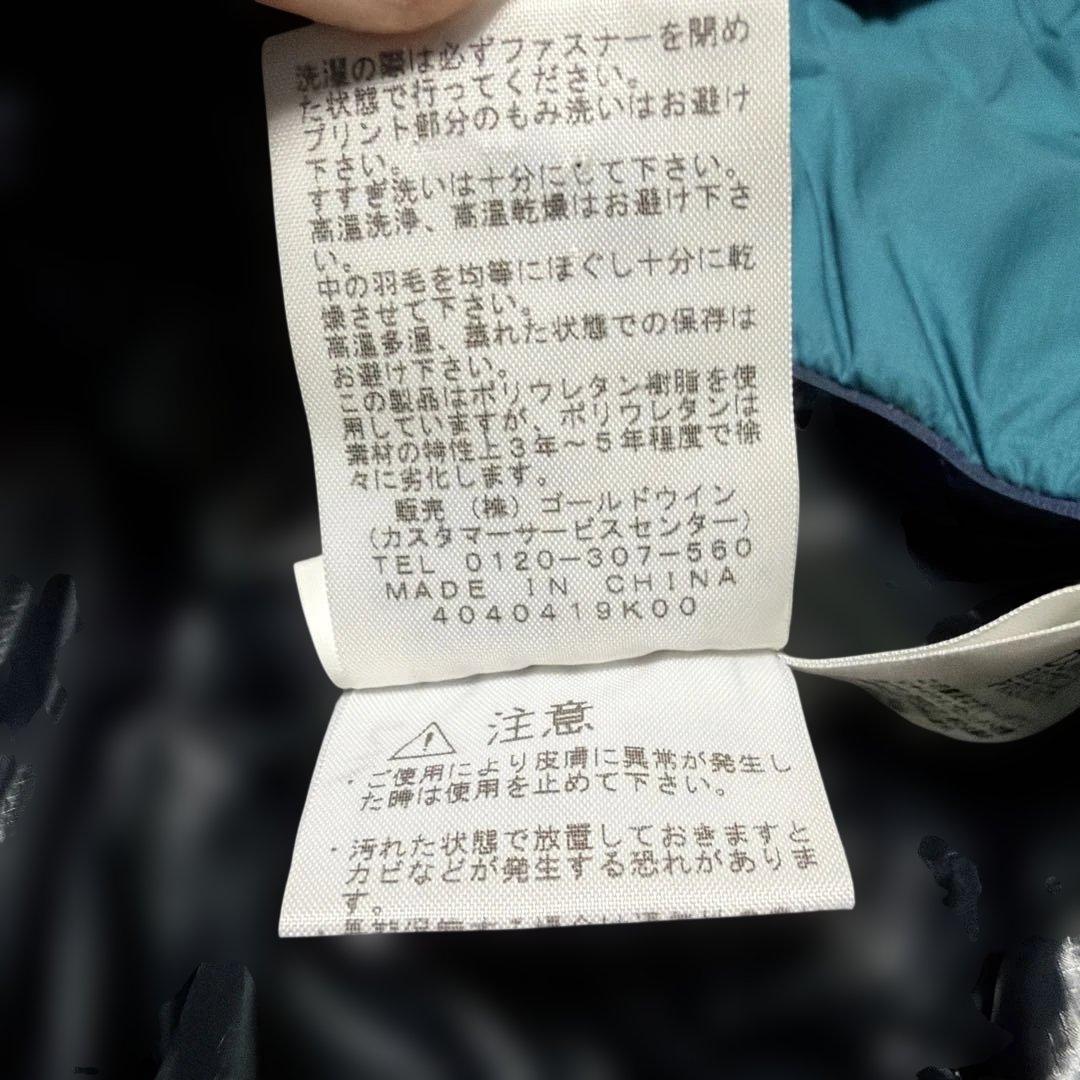 洗濯の際は必ずファスナーを閉め
た状態で行ってください。
プリント部分のもみ洗いはお避け
下さい。
すすぎ洗いは十分にして下さい。
高温洗浄、高温乾燥はお避け下さ
い。
中の羽毛を均等にほぐし十分に乾
燥させて下さい。
高温多湿、蒸れた状態での保存は
お避け下さい。
この製品はポリウレタン樹脂を使
用していますが、ポリウレタンは
素材の特性上3年～5年程度で徐
々に劣化します。
販売 (株) ゴールドウイン
(カスタマーサービスセンター)
TEL 0120-307-560
MADE IN CHINA
4040419K00
注意
・ご使用により皮膚に異常が発生し
た時は使用を止めて下さい。
・汚れた状態で放置しておきますと
カビなどが発生する恐れがありま
す。